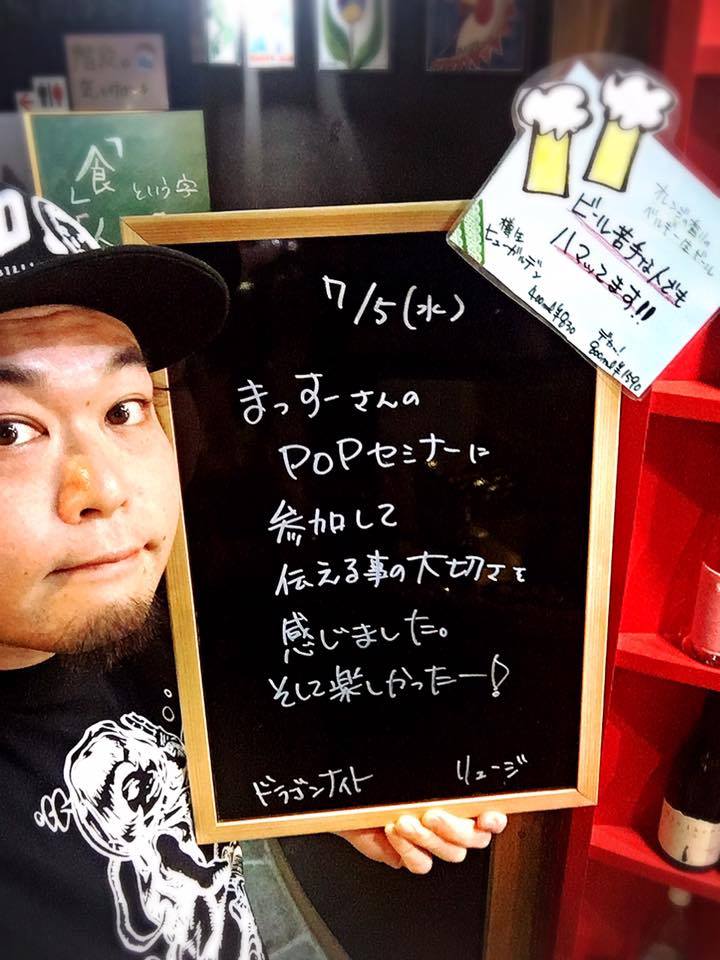 「食」
という字
7/5(水)
まっすーさんの
POPセミナーに
参加して
伝える事の大切さを
感じました。
そして楽しかったー!
ドラゴンナイト リュージ
ビール苦手な人でも
ハマッてます!!
樽生
ヒューガルデン
400ml ¥830
デカー!
800ml ¥1590